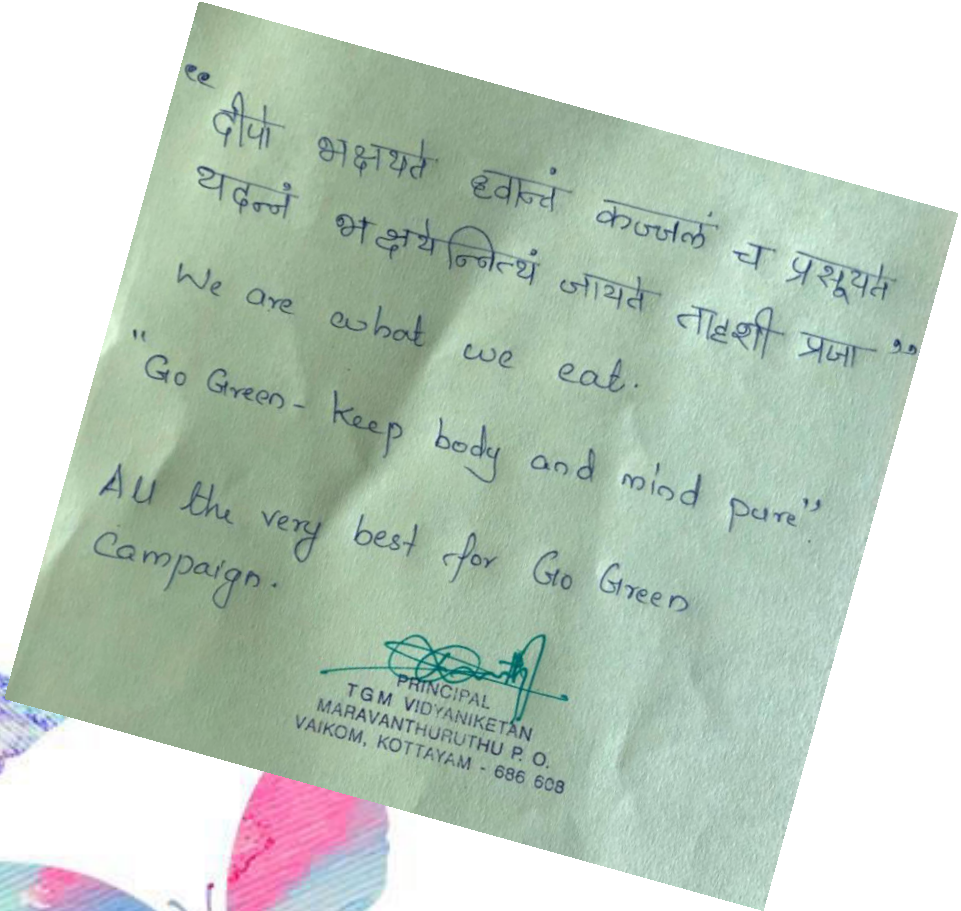 “ दीपो भक्षयते ध्वान्तं कज्जलं च प्रसूयते
यदन्नं भक्षयेन्नित्यं जायते तादृशी प्रजा ”
We are what we eat.
"Go Green- keep body and mind pure"
All the very best for Go Green
Campaign.
PRINCIPAL
TGM VIDYANIKETAN
MARAVANTHURUTHU P. O.
VAIKOM, KOTTAYAM - 686 608